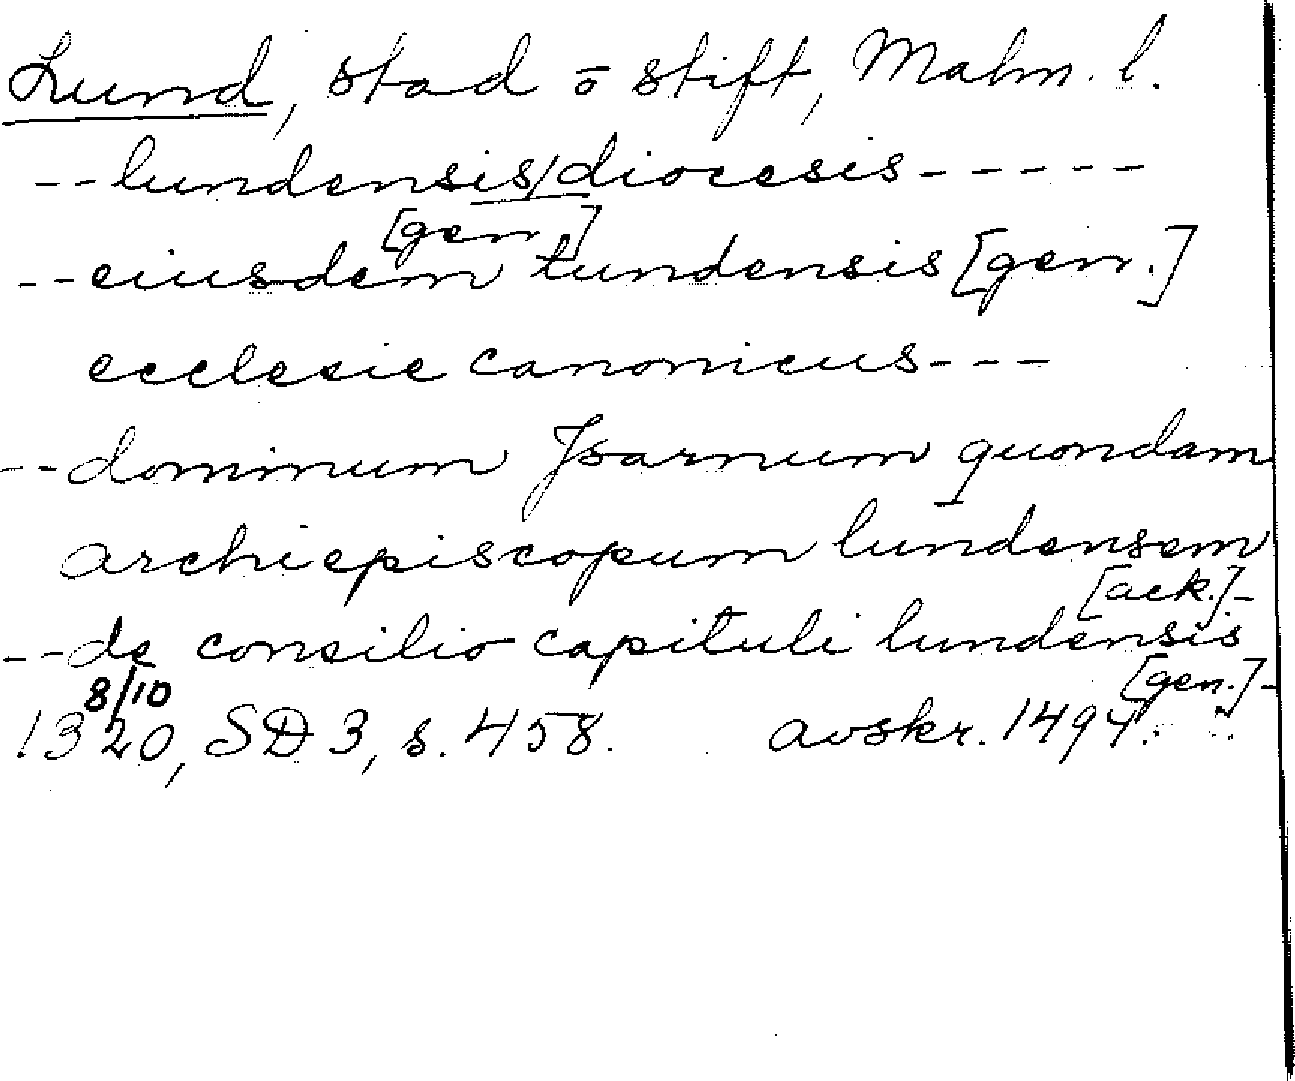 Lund, stad o stift, Malm. l.
--lundensis/diocesis-----
[gen.]
--eiusdem lundensis [gen.]
ecclesie canonicus---
--dominum Jsarnum quondam
archiepiscopum lundensem
[ack.]-
--de consilio capituli lundensis
[gen.]-
8/10
1320, SD 3, s. 458. avskr. 1494.